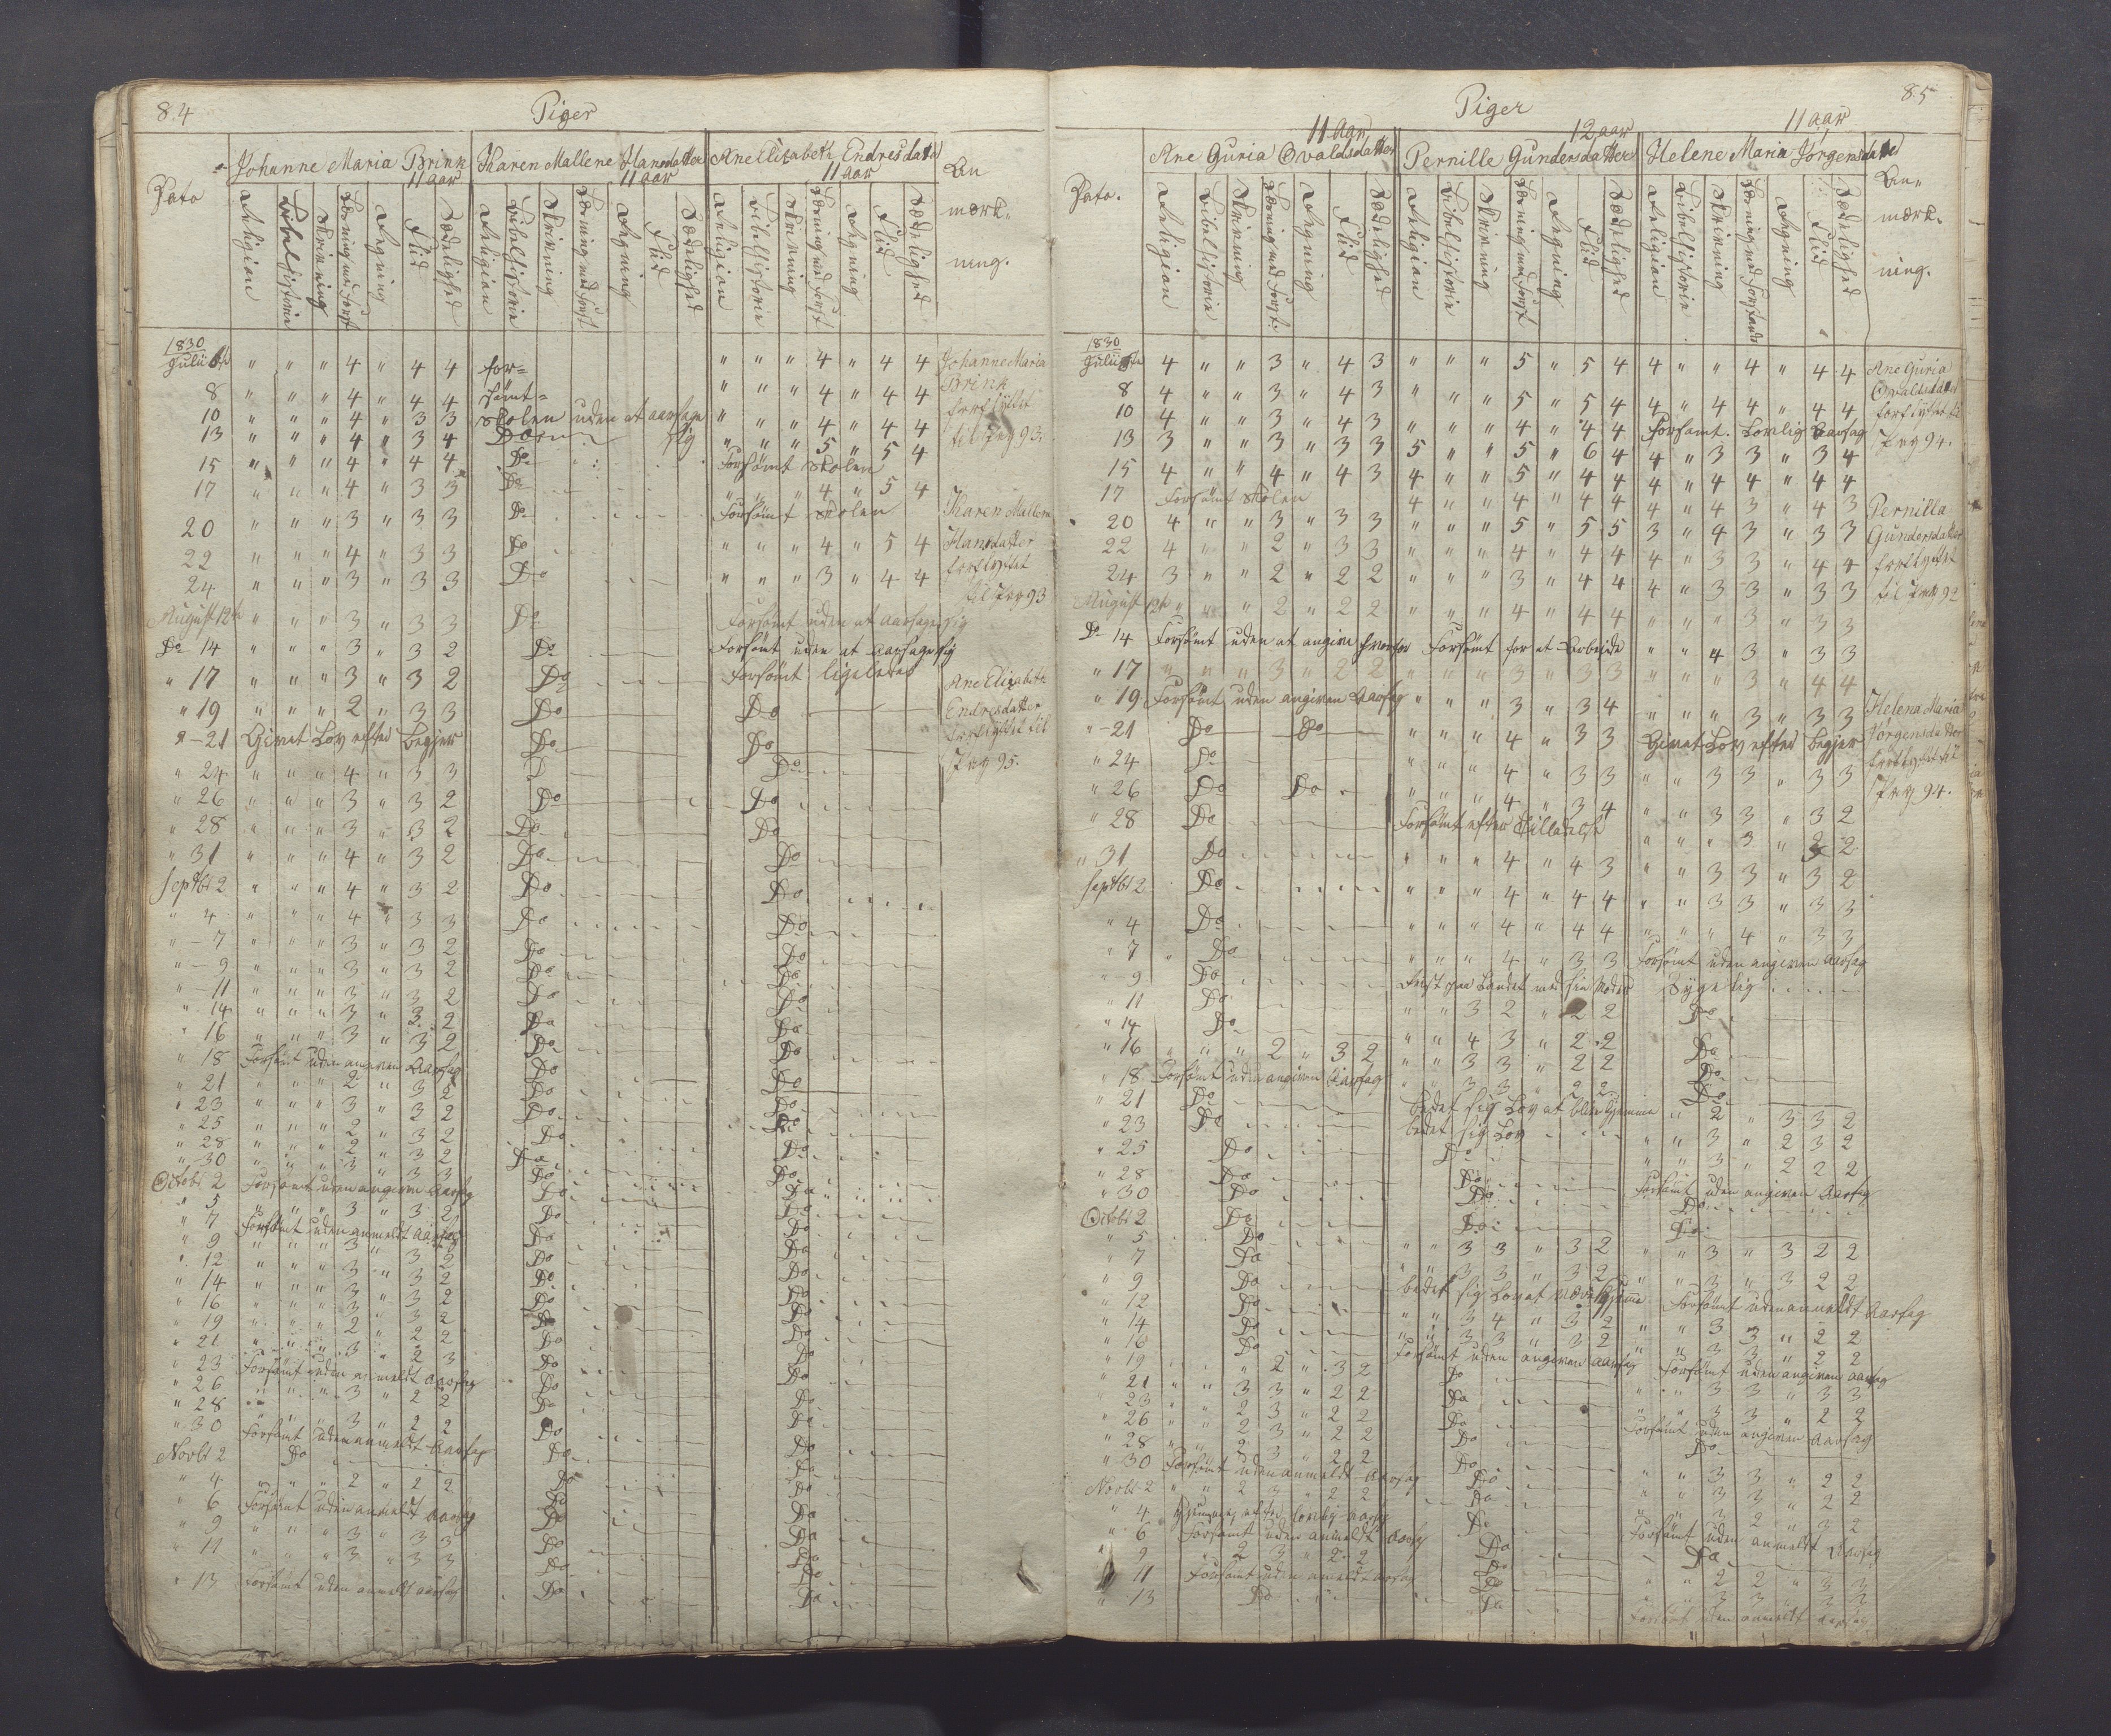 84
Piger
Johanne Maria Brink
11 aar
Karen Mallene Hansdatter
11 aar
Ane Elisabeth Endresdatter
11 aar
An
mærk-
ning.
Dato
Religion
Bibelhistorie
Skrivning
Læsning med Forst
Regning
Flid
Sædelighed
Religion
Bibelhistorie
Skrivning
Læsning med Forst
Regning
Flid
Sædelighed
Religion
Bibelhistorie
Skrivning
Læsning med Forst
Regning
Flid
Sædelighed
1830
Julii 6te " " " 4 " 4 4 for= " " " 4 " 4 4
8 " " " 4 " 4 4 sömt= " " " 4 " 4 4
10 " " " 4 " 3 3 skolen uden at aarsage " " " 4 " 4 4
13 " " " 4 " 3 4 Do sig " " " 5 " 5 4
15 " " " 4 " 4 4 Do Forsömt Skolen
17 " " " 4 " 3 3 Do " " " 4 " 5 4
20 " " " 3 " 3 3 Do Forsömt Skolen
22 " " " 4 " 3 3 Do " " " 4 " 5 4
24 " " " 3 " 3 3 Do " " " 3 " 4 4
August 12te " " " 3 " 3 3 Do Forsömt uden at aarsage sig
Do 14 " " " 3 " 3 2 Do Forsömt uden at aarsage sig
" 17 " " " 3 " 3 2 Do Forsömt ligeledes
" 19 " " " 2 " 3 3 Do Do
" 21 Givet Lov efter Begjer Do Do
" 24 " " " 4 " 3 3 D Do
" 26 " " " 3 " 3 2 Do Do
" 28 " " " 3 " 3 2 Do Do
" 31 " " " 4 " 3 2 Do Do
Septbr 2 " " " 4 " 3 2 Do Do
" 4 " " " 4 " 3 3 Do Do
" 7 " " " 3 " 3 2 Do Do
" 9 " " " 3 " 3 2 Do Do
" 11 " " " 3 " 3 2 Do Do
" 14 " " " 3 " 3 2 Do Do
" 16 " " " 3 " 3 2 Do Do
" 18 Forsömt uden angiven Aarsag Do Do
" 21 " " " 2 " 3 2 Do Do
" 23 " " " 3 " 3 2 Do Do
" 25 " " " 2 " 3 2 Do Do
" 28 " " " 2 " 3 2 Do Do
" 30 " " " 3 " 3 3 Do Do
Octobr 2 Forsömt uden angiven Aarsag Do Do
" 5 " " " 3 " 3 2 Do Do
" 7 Forsömt uden anmeldt Aarsag Do Do
" 9 " " " 3 " 3 2 Do Do
" 12 " " " 3 " 3 2 Do Do
" 14 " " " 3 " 3 2 Do Do
" 16 " " " 3 " 3 2 Do Do
" 19 " " " 2 " 2 2 Do Do
" 21 " " " 3 " 2 3 Do Do
" 23 Forsömt uden anmeldt Aarsag Do Do
" 26 " " " 3 " 2 2 Do Do
" 28
" 30 Forsömt uden anmeldt Aarsag Do Do
Novbr 2 Do Do Do
" 4 " " " 2 " 2 2 Do Do
" 6 Forsömt uden anmeldt Aarsag Do Do
" 9 " " " 3 " 3 3 Do Do
" 11 " " " 3 " 3 3 Do Do
" 13 Forsömt uden anmeldt Aarsag Do Do
Johanne Maria
Brink
forflyttet
til Pag 93.
Karen Mallene
Hansdatter
forflyttet
til Pag 93
Ane Elizabeth
Endresdatter
forflyttet til
Pag 95.
85
Piger
11 Aar
Ane Guria Osvaldsdatter
12 aar
Pernille Gundersdatter
11 aar
Helene Maria Jörgensdatter
An-
mærk-
ning.
Dato.
Religion
Bibelhistorie
Skrivning
Læsning med Forst.
Regning
Flid
Sædelighed
Religion
Bibelhistorie
Skrivning
Læsning med Forst
Regning
Flid
Sædelighed
Religion
Bibelhistorie
Skrivning
Læsning med Forstand
Regning
Flid
Sædelighed
1830
Julii 6te 4 " " 3 " 4 3 " " " 5 " 5 4 4 " " 4 " 4 4
8 4 " " 3 " 4 3 " " " 5 " 5 4 4 " 4 4 " 4 4
10 4 " " 3 " 4 3 " " " 4 " 4 4 Forsömt. Lovlig Aarsag
13 3 " " 3 " 3 3 5 " " 5 " 6 4 4 " 3 3 " 3 4
15 4 " " 4 " 4 3 4 " " 5 " 4 4 4 " 4 4 " 4 4
17 Forsömt Skolen 4 " " 4 " 4 4 4 " 4 3 " 4 3
20 4 " " 3 " 3 3 " " " 5 " 5 5 3 " 4 3 " 3 3
22 4 " " 2 " 3 3 " " " 4 " 4 4 4 " 3 3 " 4 4
24 3 " " 2 " 2 2 " " " 3 " 4 4 4 " 3 3 " 3 3
August 12te " " " 2 " 2 2 " " " 4 " 4 4 " " " 3 " 3 3
Do 14 Forsömt uden at angive hvorfor Forsömt for at Arbejde " " 4 3 " 3 3
" 17 " " " 3 " 2 2 " " " 3 " 3 3 " " " 3 " 4 4
" 19 Forsömt uden angiven Aarsag " " " 3 " 3 4 " " " 3 " 3 3
" 21 Do Do " " " 4 " 3 3 Givet Lov efter Begjer
" 24 Do " " " 4 " 3 3 " " 3 3 " 3 3
" 26 Do Do " " " 4 " 3 4 " " 3 3 " 3 2
" 28 Do Forsömt efter Tilladelse " " " 3 " 2 2
" 31 Do " " " 4 " 4 3 " " 3 3 " 3 2
Septbr 2 Do " " " 4 " 4 4 " " 3 3 " 3 3
" 4 Do " " " 4 " 4 4 " " " 4 " 3 3
" 7 Do " " " 4 " 3 3 Forsömt uden angiven Aarsag
" 9 Do Reist paa Landet med sin Moder Sygelig
" 11 Do " " 3 2 " 2 2 Do
" 14 Do " " 4 3 " 2 2 Do
" 16 " " " 2 " 3 2 " " 3 3 " 2 2 Do
" 18 Forsömt uden angiven Aarsag " " 3 3 " 2 2 Do
" 21 Do bedet sig Lov at blive hjemme " 2 " 3 3 2
" 23 Do bedet sig Lov " " 3 " 2 3 2
" 25 Do Do " " 3 " 2 2 2
" 28 Do Do Forsömt uden angiven Aarsag
" 30 Do Do Do
Octobr 2 Do Do Do
" 5 Do " " 3 3 " 3 2 " " 3 " 3 2 2
" 7 Do " " 3 3 " 3 2 " " 3 " 3 2 2
" 9 Do bedet sig Lov at være hjemme Forsömt uden anmeldt Aarsag
" 12 Do " " 3 4 " 3 2 " " 3 3 " 2 2
" 14 Do " " 3 3 " 3 2 " " 3 3 " 2 2
" 16 Do Forsömt uden angiven Aarsag Forsömt uden angiven Aarsag
" 19 " " " 2 " 3 2 Do " " 3 3 " 3 3
" 21 " " 3 3 " 2 2 Do " " 3 3 " 2 2
" 23 " " 2 3 " 2 2 Do Forsömt uden angiven Aarsag
" 26 " " 2 3 " 2 2 Do Do
" 28 " " 2 3 " 2 2 Do " " 3 3 " 2 2
" 30 Forsömt uden anmeldt Aarsag Do " " 3 3 " 2 2
Novbr 2 " " 2 3 " 2 2 Do " " 3 2 " 3 2
" 4 hjemme efter lovlig Aarsag Do Forsömt uden anmeldt Aarsag
" 6 Forsömt uden anmeldt Aarsag Do Do
" 9 " " 2 3 " 2 2 Do " " 2 2 " 3 3
" 11 Forsömt uden anmeldt Aarsag Do " " 3 3 " 3 3
" 13 Do Do Forsömt uden anmeldt Aarsag
Ane Guria
Osvaldsdatter
forflyttet til
Pag 94.
Pernilla
Gundersdatter
forflyttet
til Pag 92
Helena Maria
Jörgensdatter
forflyttet til
Pag 94.